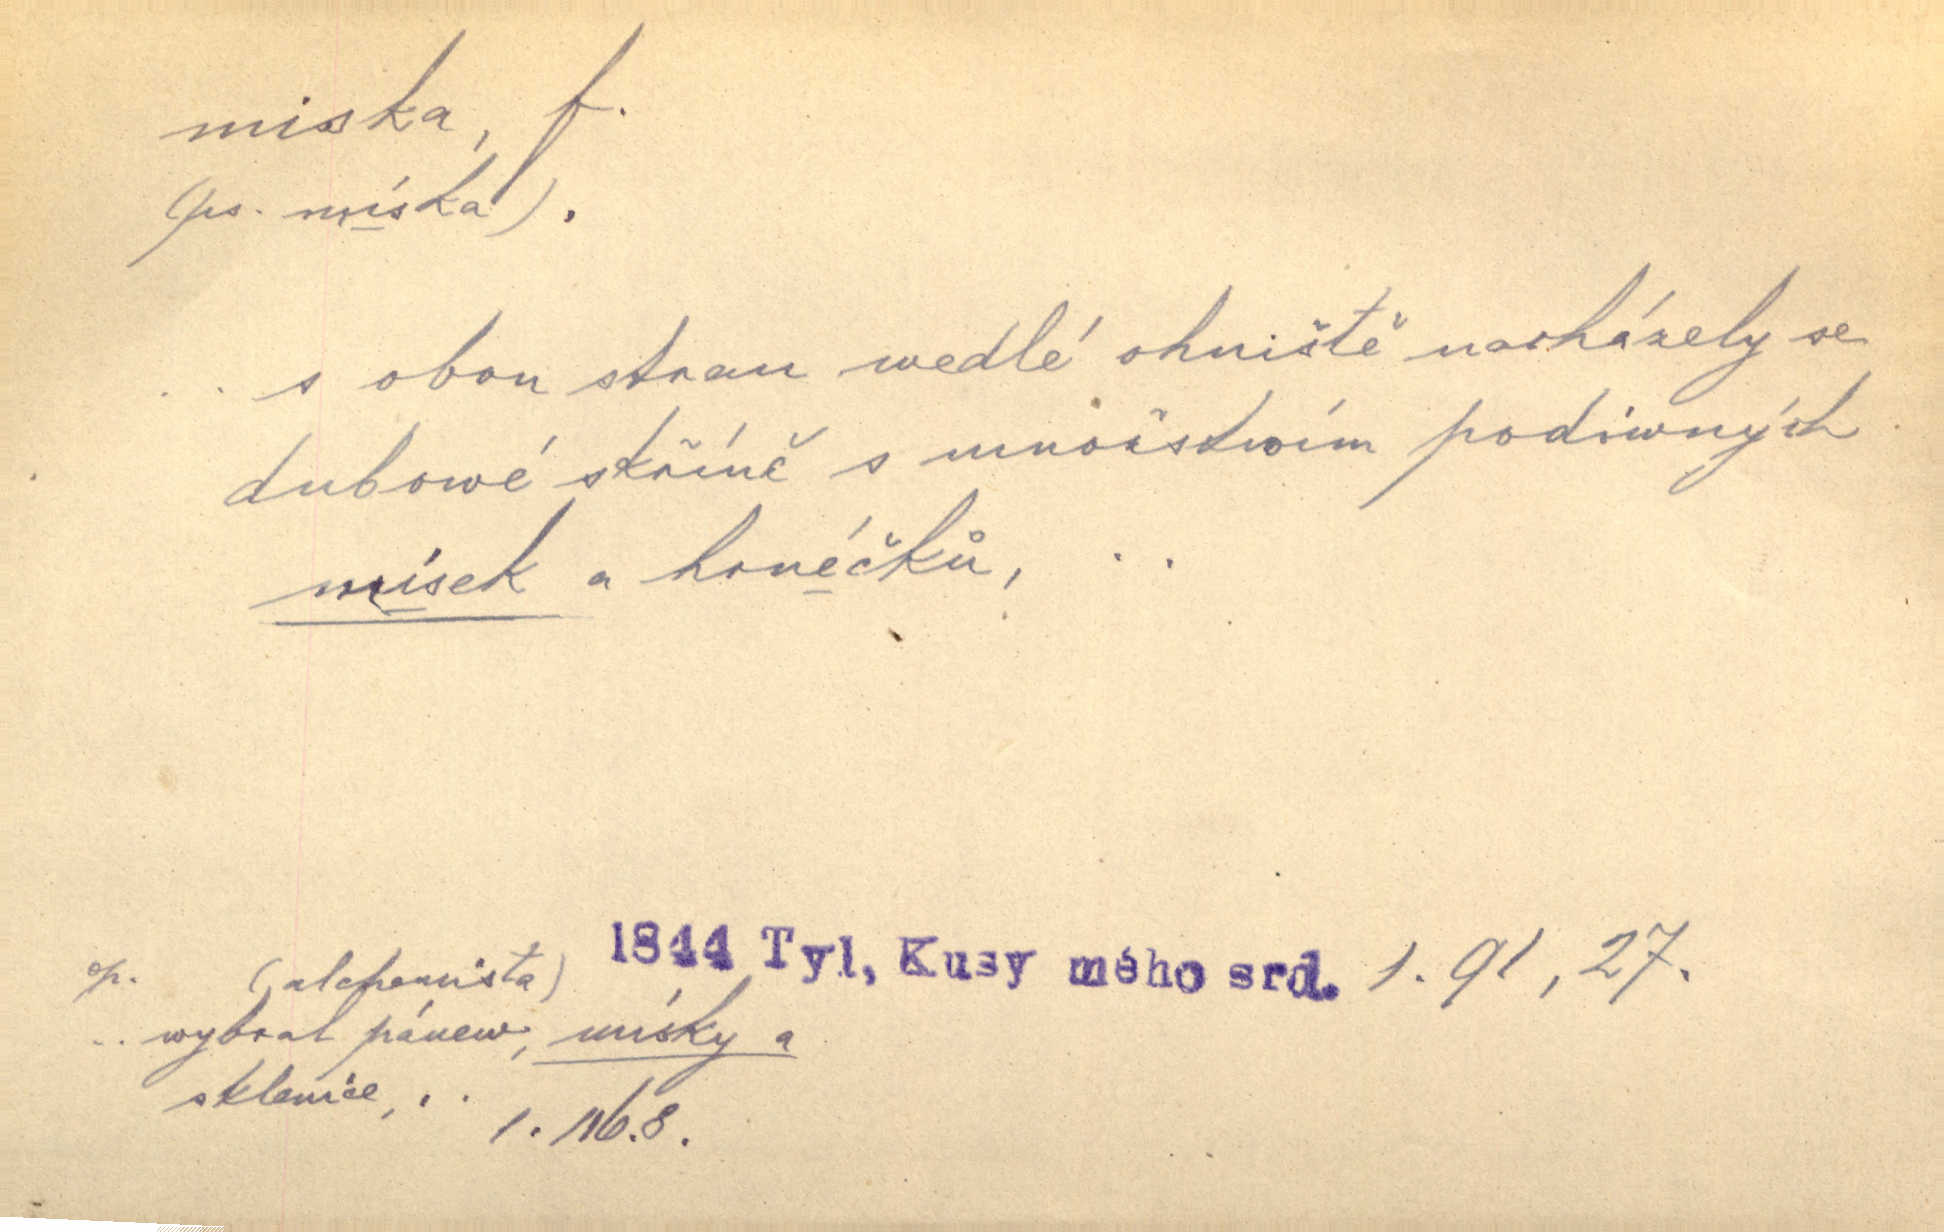 miska, f.
(ps. míska).
.. s obou stran wedlé ohniště nacházely se
dubowé skříně s množstwím podiwných
mísek a hrnéčků, ..
1844 Tyl, Kusy mého srd. 1. 91, 27.
op. (alchemista)
.. wybral pánew, mísky a
sklenice, ..
1. 116.8.